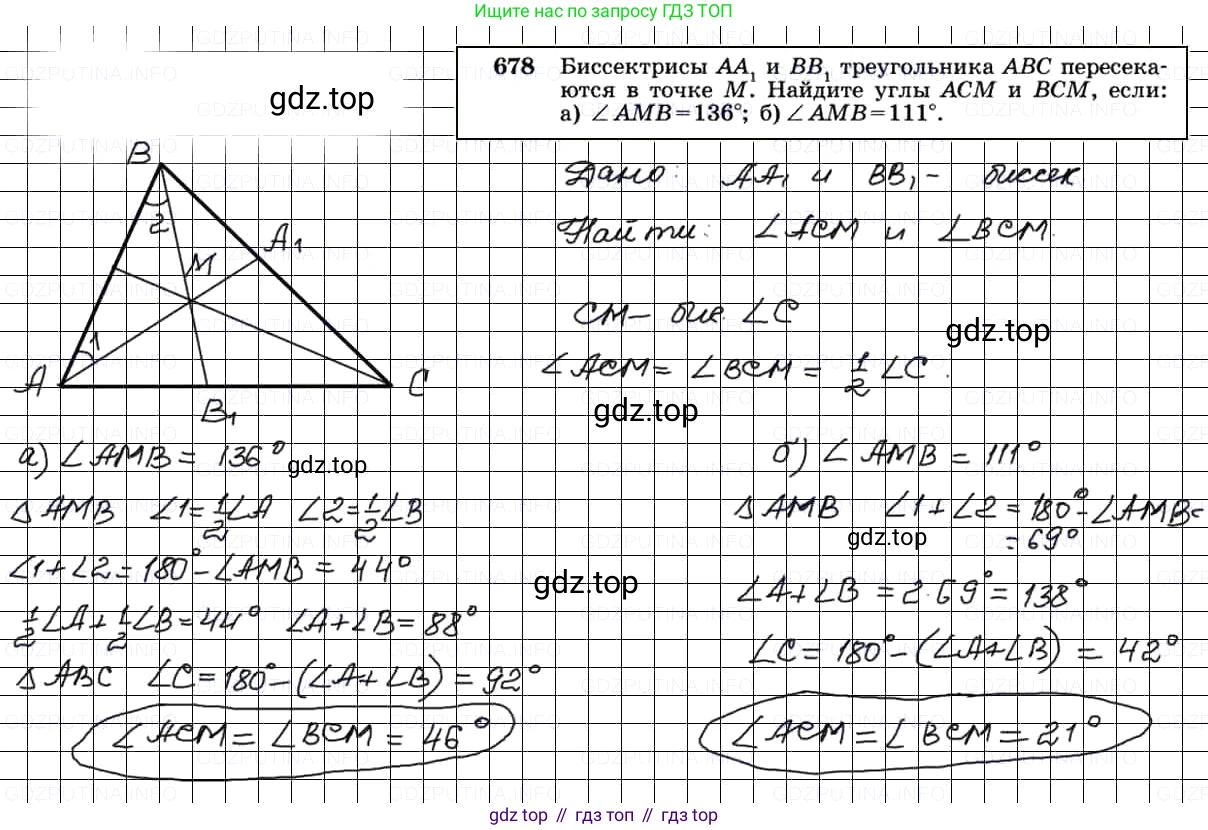 Ищите нас по запросу ГДЗ ТОП
678 Биссектрисы AA₁ и BB₁ треугольника ABC пересека-
ются в точке M. Найдите углы ACM и BCM, если:
а) ∠AMB=136°; б) ∠AMB=111°.
gdz.top
B
2
A₁
M
1
A
C
B₁
Дано: AA₁ и BB₁ - биссек
Найти: ∠ACM и ∠BCM.
CM- бис. ∠C
gdz.top
∠ACM = ∠BCM = 1/2 ∠C.
gdz.top
а) ∠AMB = 136°
gdz.top
△ AMB ∠1=1/2∠A ∠2=1/2∠B
∠1+∠2=180°-∠AMB = 44°
gdz.top
1/2∠A+1/2∠B=44° ∠A+∠B=88°
△ ABC ∠C=180°-(∠A+∠B)=92°
∠ACM = ∠BCM = 46°
б) ∠AMB = 111°
△ AMB ∠1+∠2=180°-∠AMB=
gdz.top
=69°
∠A+∠B = 2·69°=138°
∠C=180°-(∠A+∠B) = 42°
∠ACM=∠BCM=21°
gdz top // гдз топ // gdz top
GDZPUTINA.INFO